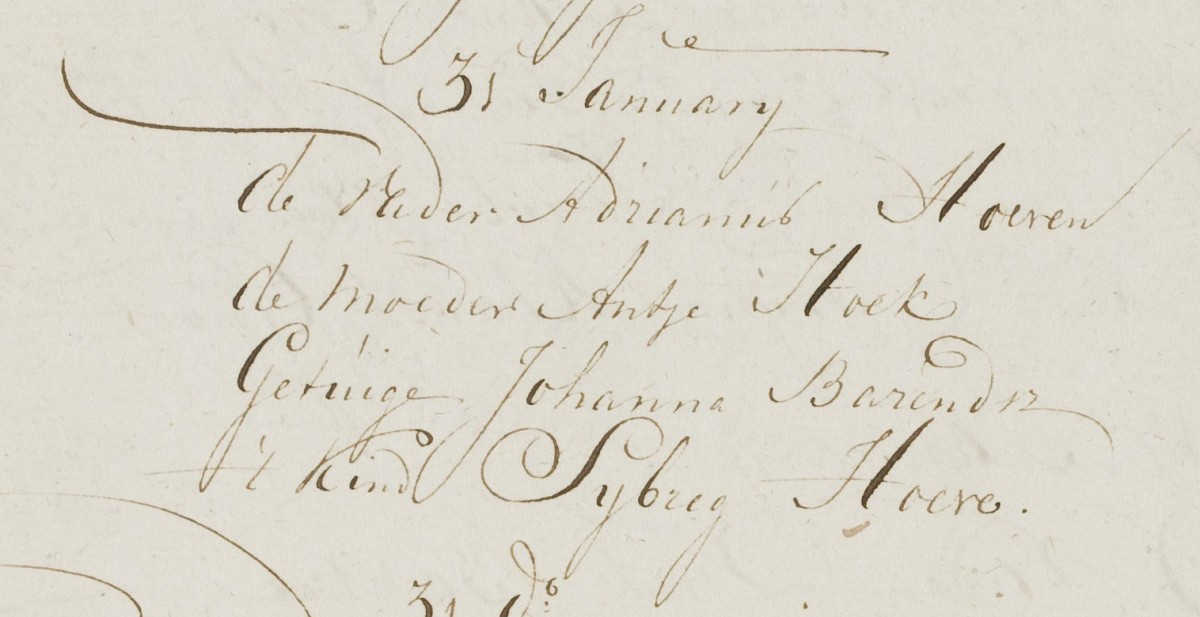 31 January
de Vader Adrianus Hoeven
de Moeder Antje Hoek
Getuige Johanna Barendz
't Kind Sybreg Hoeve.
31 do